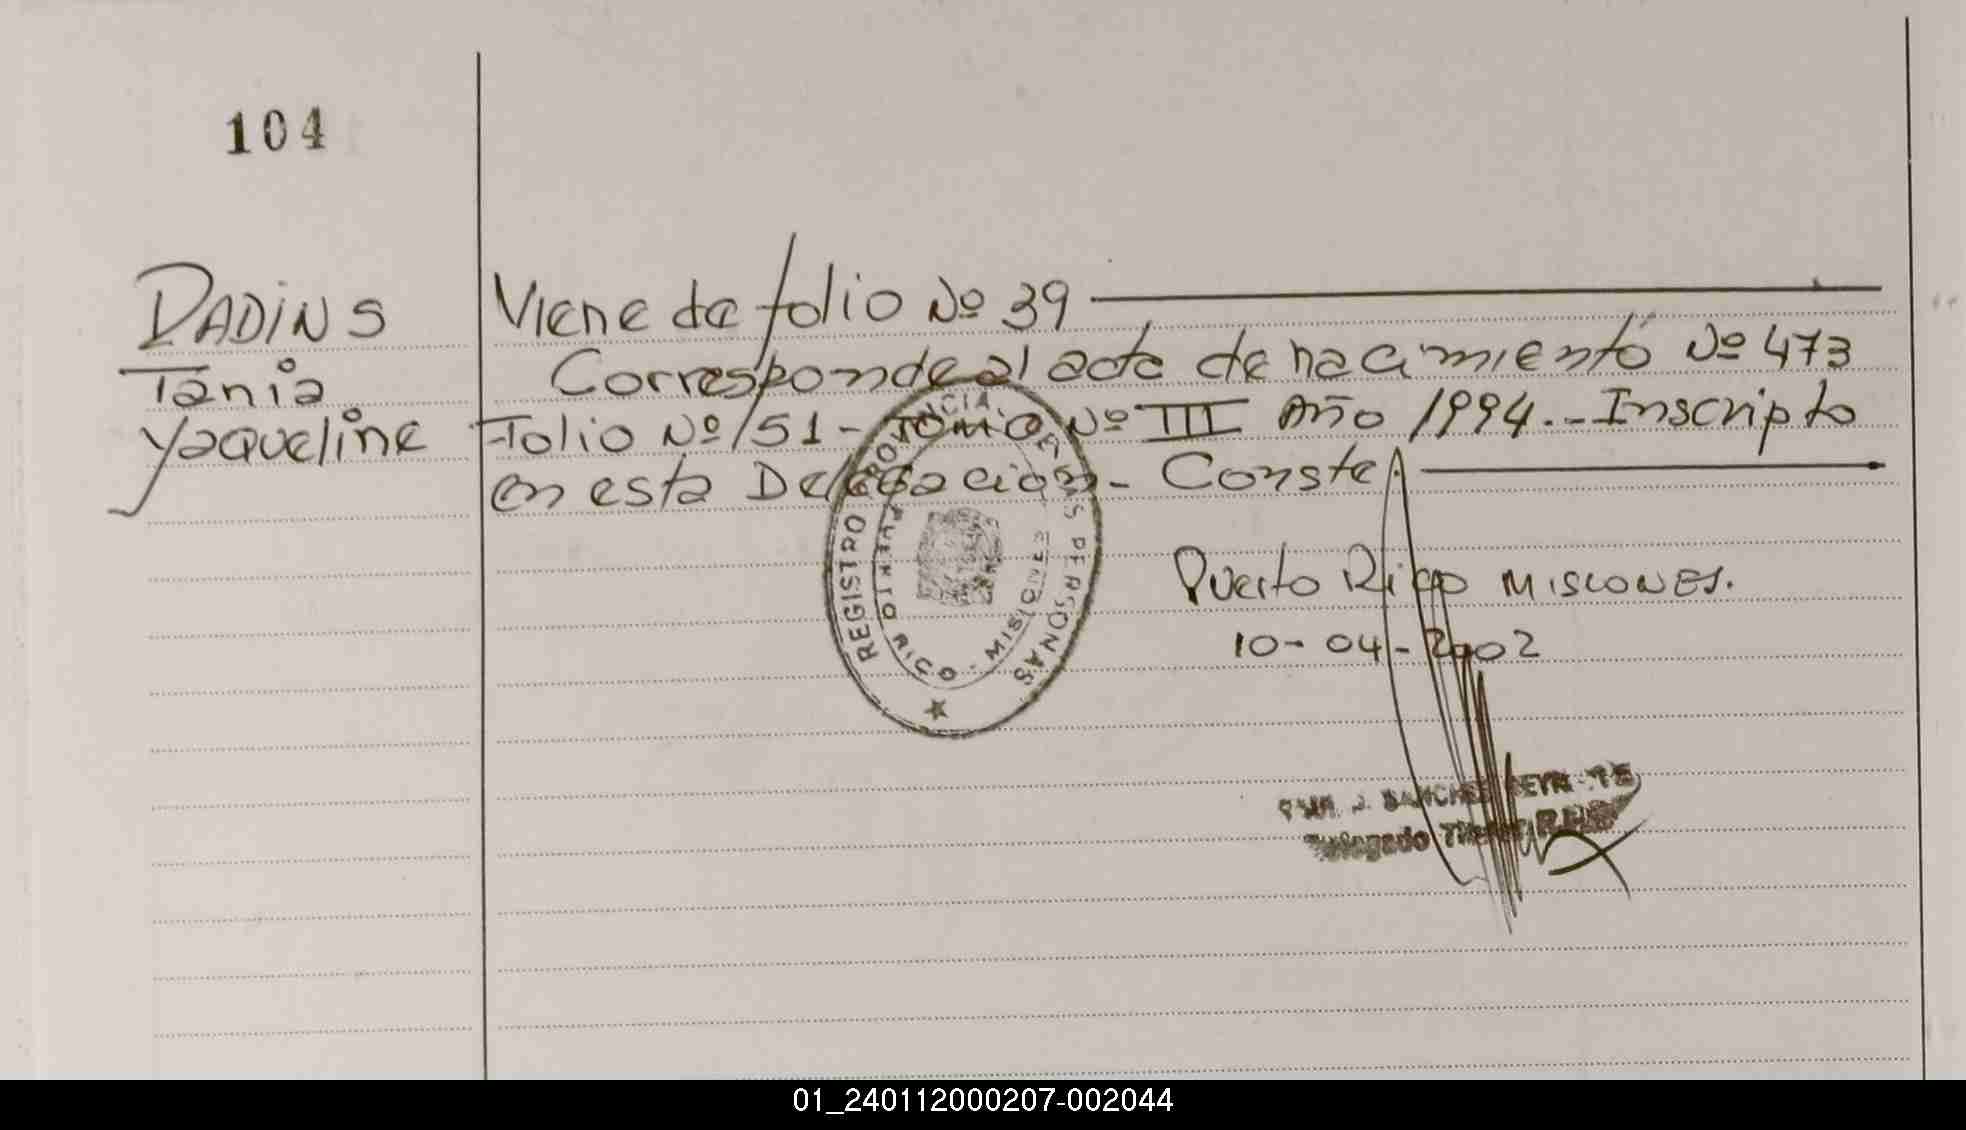 104
DADINS
Tania
Yaqueline
Viene de folio Nº 39
Corresponde al acta de nacimiento Nº 473
Folio Nº 151 - TOMO Nº III Año 1994.- Inscripto
en esta Delegacion - Conste.
Puerto Rico MISIONES.
10-04-2002
REGISTRO PROVINCIAL DE LAS PERSONAS
PUERTO RICO - MISIONES
J. SANCHEZ
Delegado Titular
01_240112000207-002044